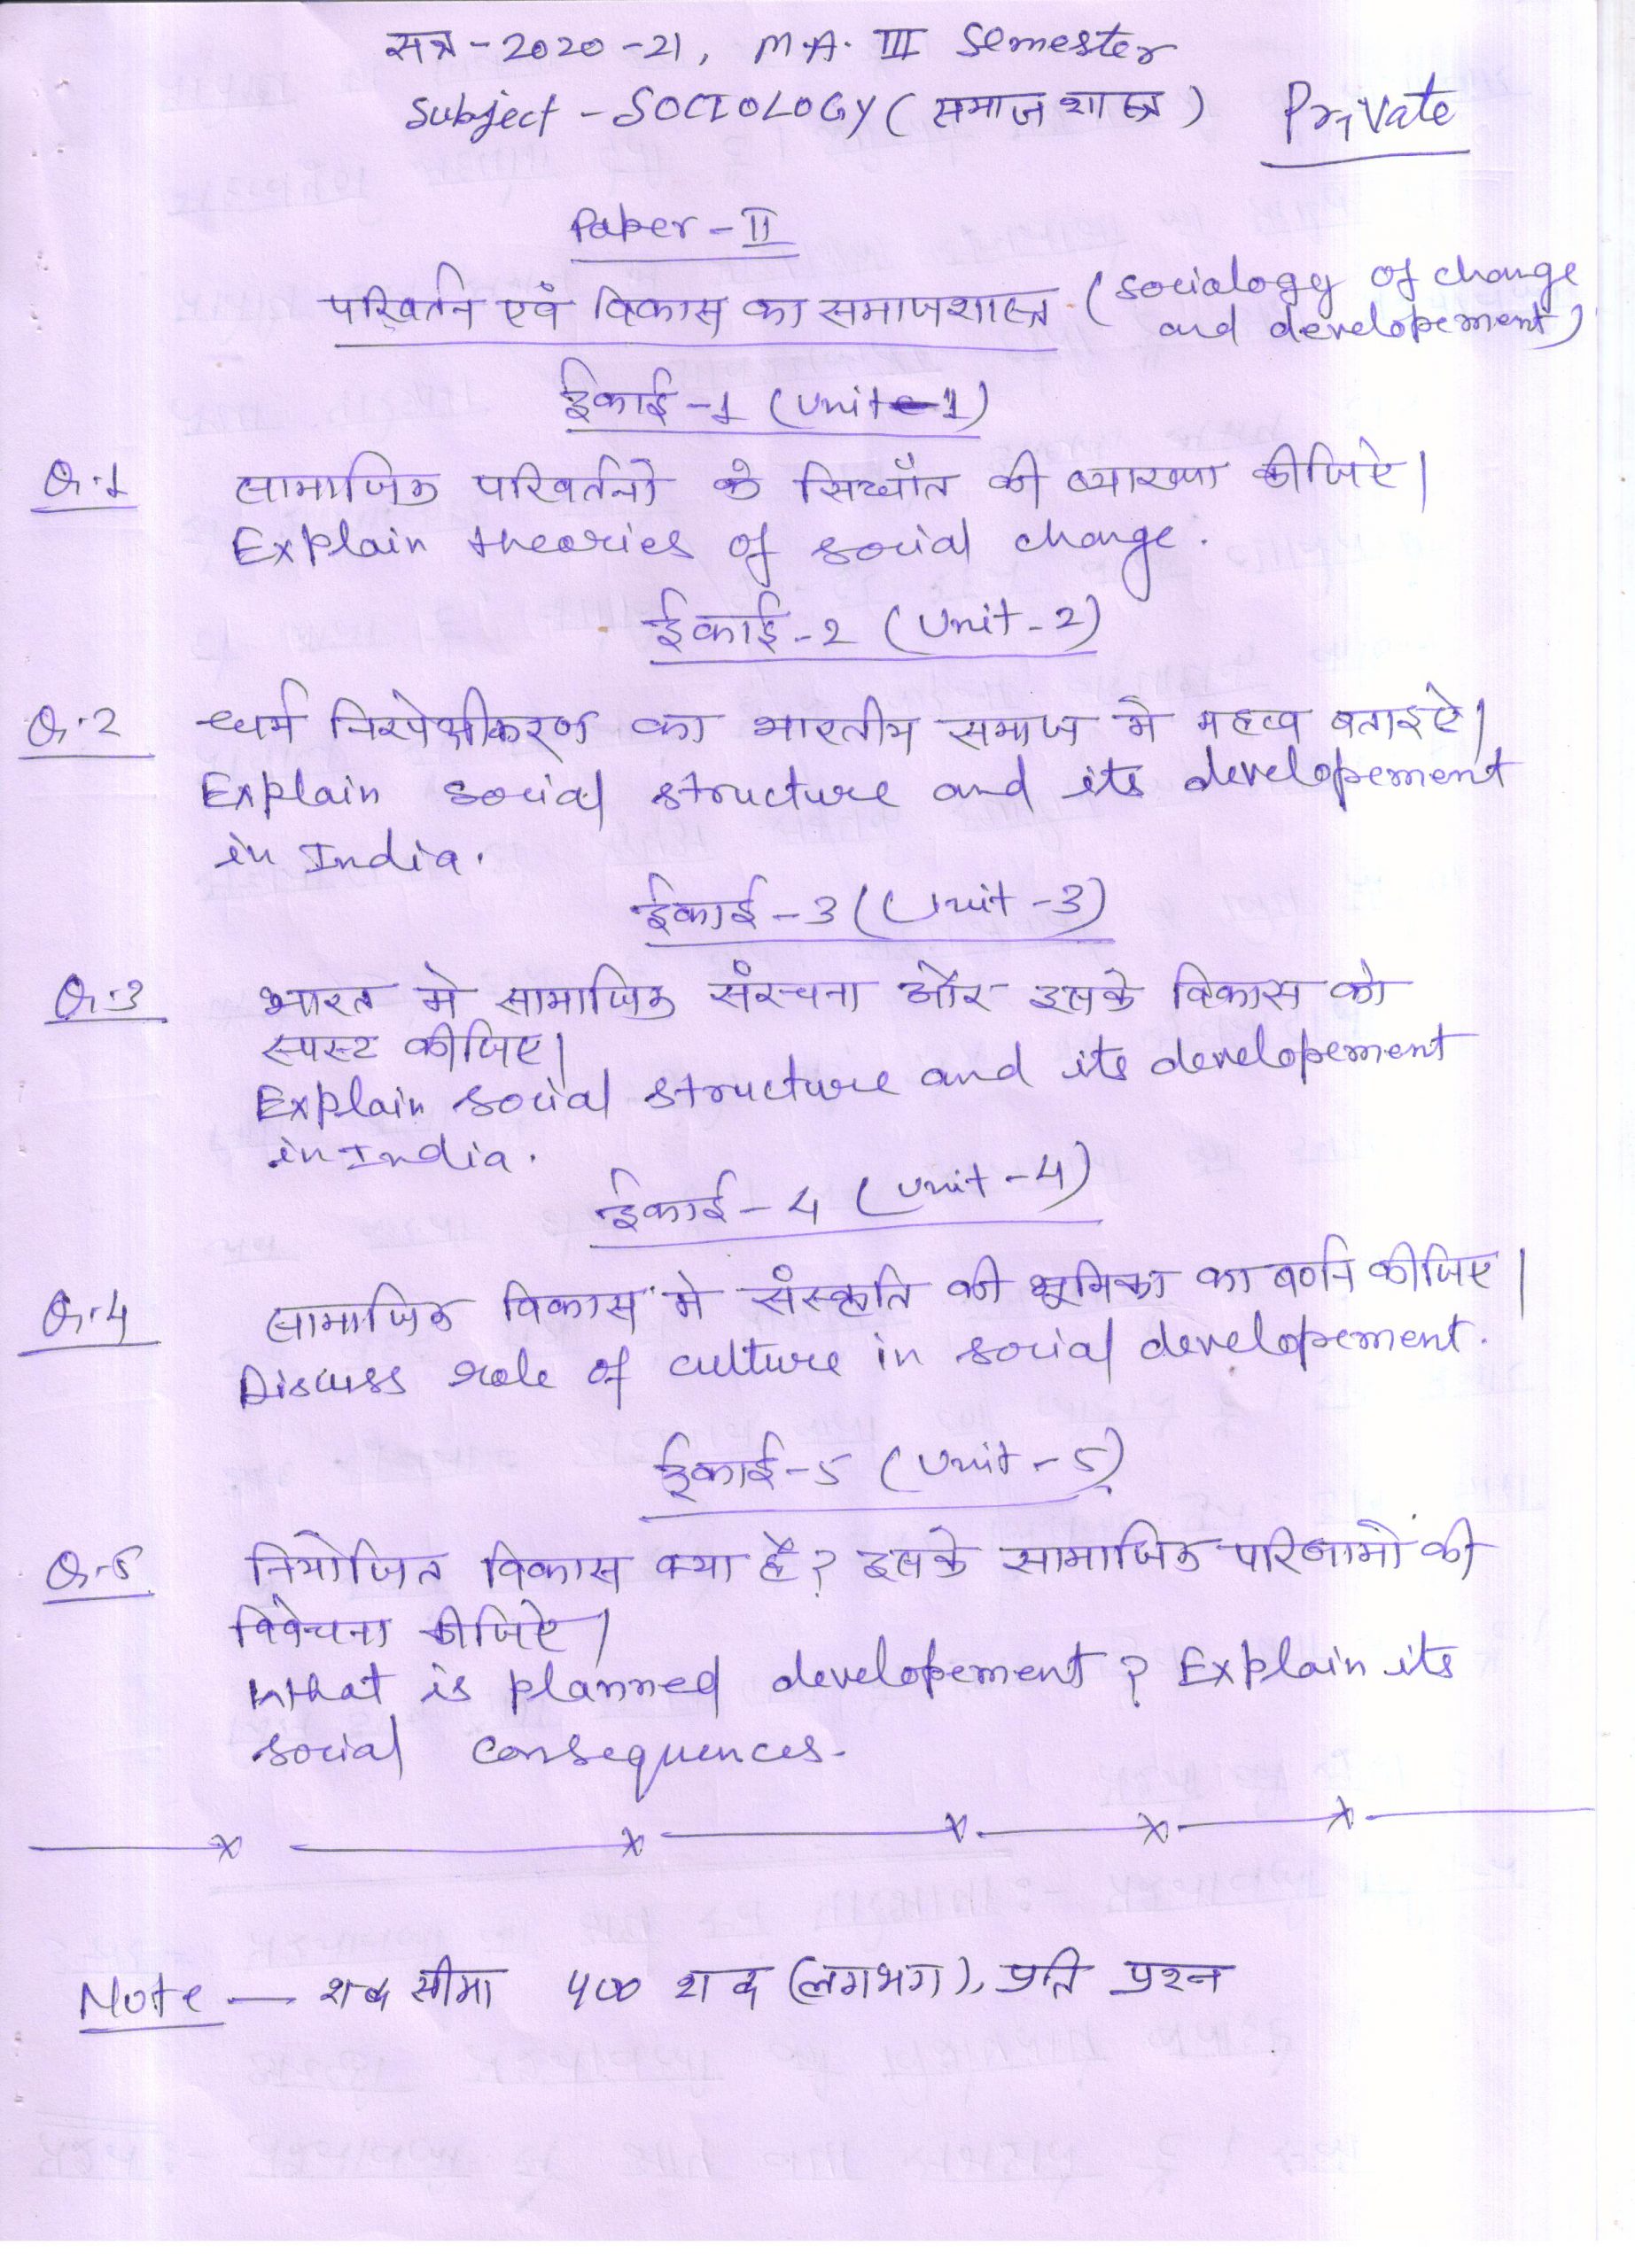 सत्र - 2020-21, M.A. III Semester
Subject - SOCIOLOGY ( समाज शास्त्र ) Private
Paper - II
परिवर्तन एवं विकास का समाजशास्त्र - ( sociology of change
and developement )
ईकाई -1 ( Unit-1 )
Q.1 सामाजिक परिवर्तनो के सिध्दाँत की व्याख्या कीजिऐ |
Explain theories of social change.
ईकाई -2 ( Unit-2 )
Q.2 धर्म निरपेक्षीकरण का भारतीय समाज मे महत्व बताइऐ |
Explain social structure and its developement
in India.
ईकाई -3 ( Unit -3 )
Q.3 भारत मे सामाजिक संरचना और इसके विकास को
स्पस्ट कीजिए |
Explain social structure and its developement
in India.
ईकाई - 4 ( Unit -4 )
Q.4 सामाजिक विकास मे संस्कृति की भूमिका का वर्णन कीजिए |
Discuss role of culture in social developement.
ईकाई -5 ( Unit - 5 )
Q.5 नियोजित विकास क्या है ? इसके सामाजिक परिणामो की
विवेचना कीजिऐ |
What is planned developement ? Explain its
social consequences.
Note — शब्द सीमा 400 शब्द (लगभग), प्रति प्रश्न